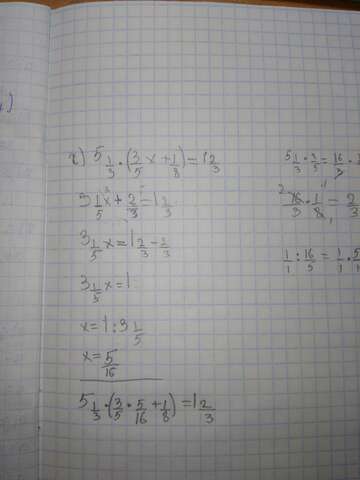 х) 5 1/3 · (3/5 x + 1/8) = 1 2/3
3 1/5 x + 2/3 = 1 2/3
3 1/5 x = 1 2/3 - 2/3
3 1/5 x = 1
x = 1 : 3 1/5
x = 5/16
5 1/3 · (3/5 · 5/16 + 1/8) = 1 2/3
5 1/3 · 3/5 = 16/3 ·
16/3 · 1/8 = 2/3
1/1 : 16/5 = 1/1 · 5/